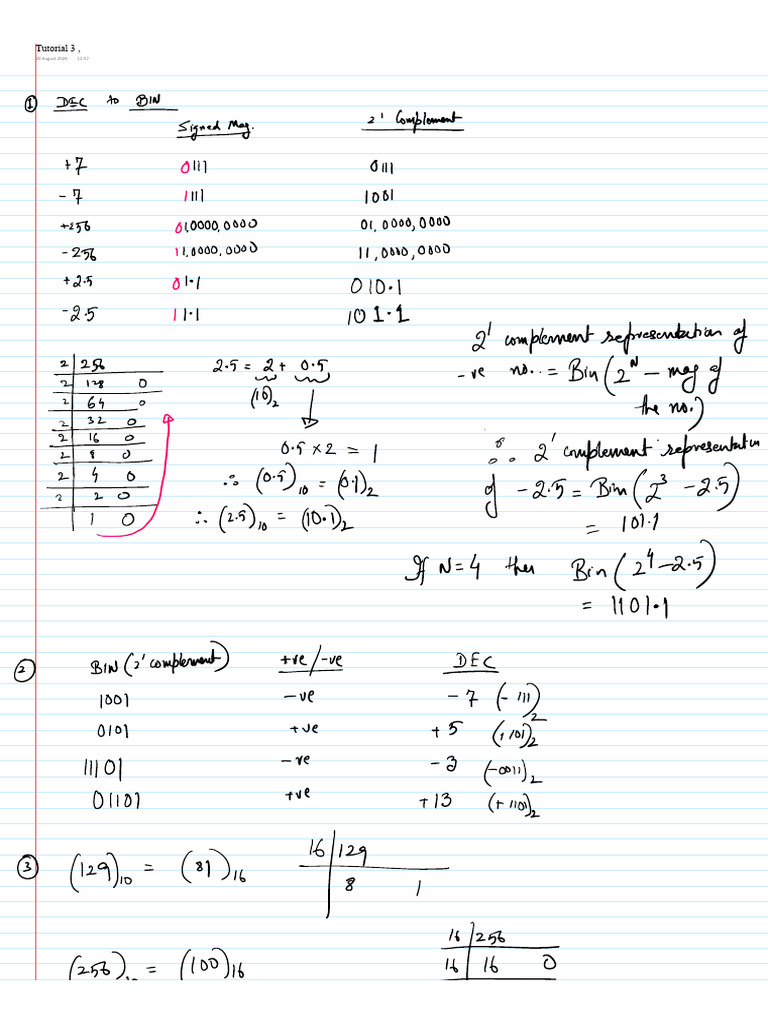 Tutorial 3 ,
20 August 2024 11:57
① DEC to BIN
Signed Mag. 2' Complement
+7 0111 0111
-7 1111 1001
+256 01,0000,0000 01,0000,0000
-256 11,0000,0000 11,0000,0000
+2.5 01.1 010.1
-2.5 11.1 101.1
2 256
2 128 0
2 64 0
2 32 0
2 16 0
2 8 0
2 4 0
2 2 0
1 0
2.5 = 2 + 0.5
(10)₂
0.5 × 2 = 1
∴ (0.5)₁₀ = (0.1)₂
∴ (2.5)₁₀ = (10.1)₂
2' complement representation of
-ve no.. = Bin(2^N - mag of
the no.)
∴ 2' complement representation
of -2.5 = Bin(2³ - 2.5)
= 101.1
If N=4 then Bin(2⁴-2.5)
= 1101.1
② BIN (2' complement) +ve/-ve DEC
1001 -ve -7 (-111)₂
0101 +ve +5 (+101)₂
11101 -ve -3 (-0011)₂
01101 +ve +13 (+1101)₂
③ (129)₁₀ = (81)₁₆
16 129
8 1
(256)₁₀ = (100)₁₆
16 256
16 16 0